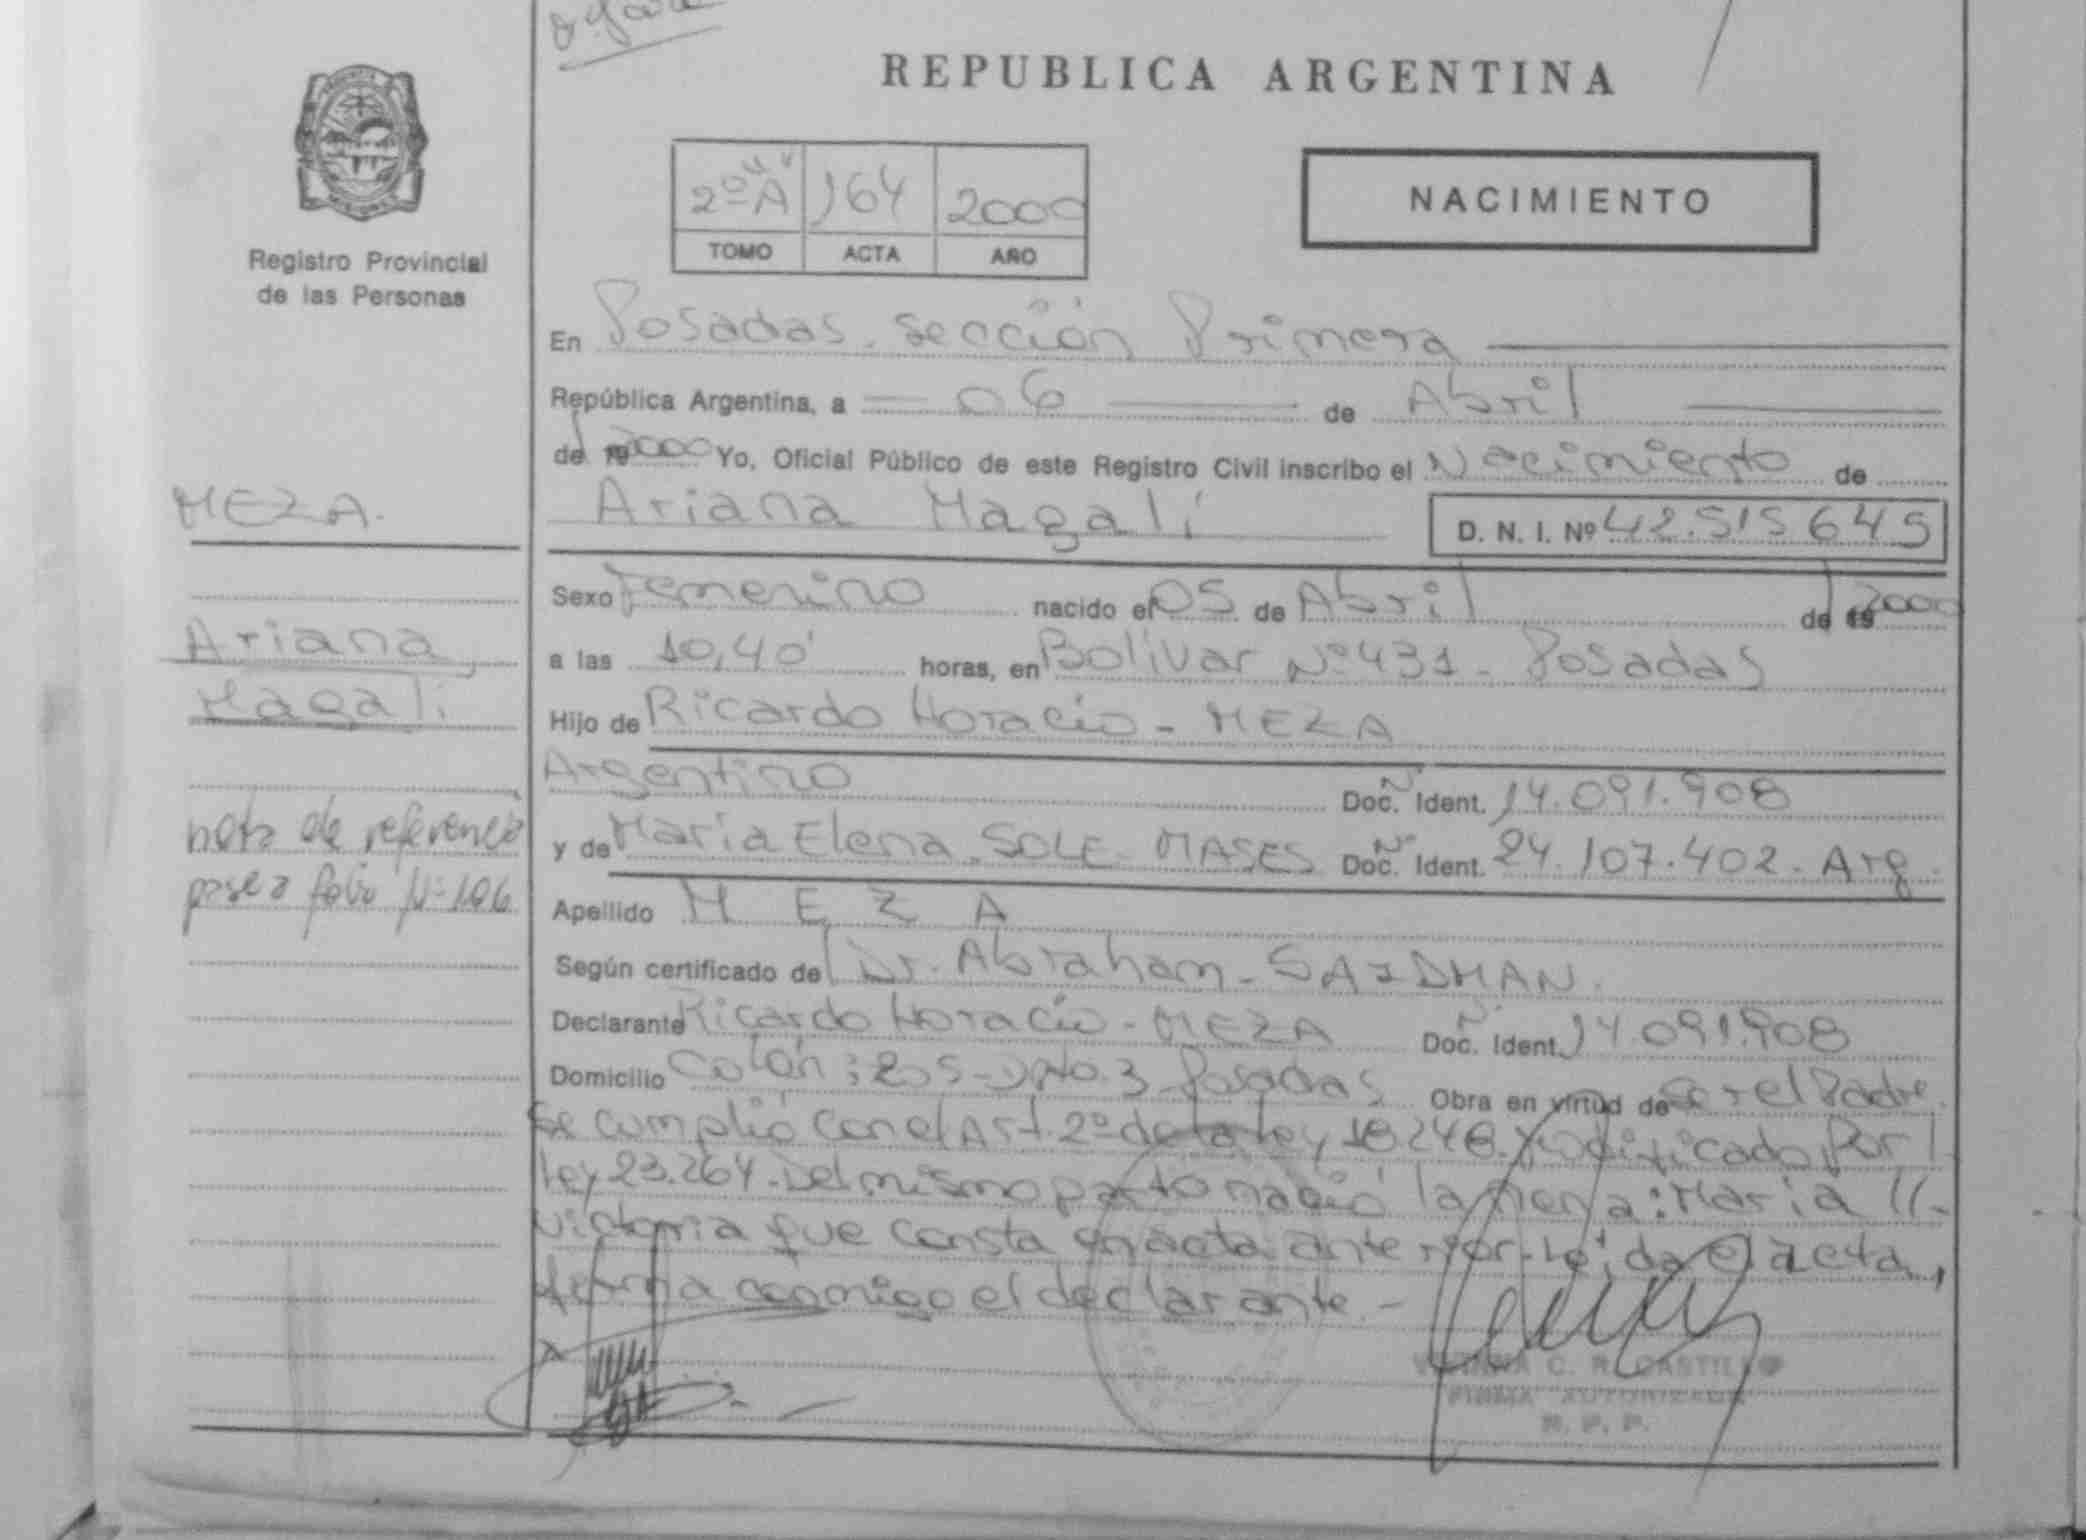 REPUBLICA ARGENTINA
2º A 164 2000
TOMO ACTA AÑO
NACIMIENTO
Registro Provincial
de las Personas
En Posadas. Sección Primera
República Argentina, a 06 de Abril
de 19 2000 Yo, Oficial Público de este Registro Civil inscribo el Nacimiento de
MEZA.
Ariana Magalí
D. N. I. Nº 42.515.645
Sexo Femenino nacido el 05 de Abril de 19 2000
Ariana
a las 10,40' horas, en Bolívar Nº 431 - Posadas
Magalí
Hijo de Ricardo Horacio - MEZA
Argentino Doc. Ident. 14.091.908
nota de referencia
y de María Elena. SOLE - MASES Doc. Ident. 24.107.402 - Arg.
pase a folio Nº 106
Apellido MEZA
Según certificado de Dr. Abraham - SAIDMAN.
Declarante Ricardo Horacio - MEZA Doc. Ident. 14.091.908
Domicilio Colón: 205 - Dpto. 3 Posadas Obra en virtud de ser el Padre.
Se cumplió con el Art. 2º de la Ley 18.248. Modificado Por
Ley 23.264. Del mismo parto nació la nena: María
Victoria que consta en acta anterior. Leída el acta,
firma conmigo el declarante. -
C. R. CASTILLO
FIRMA AUTORIZADA
R. P. P.